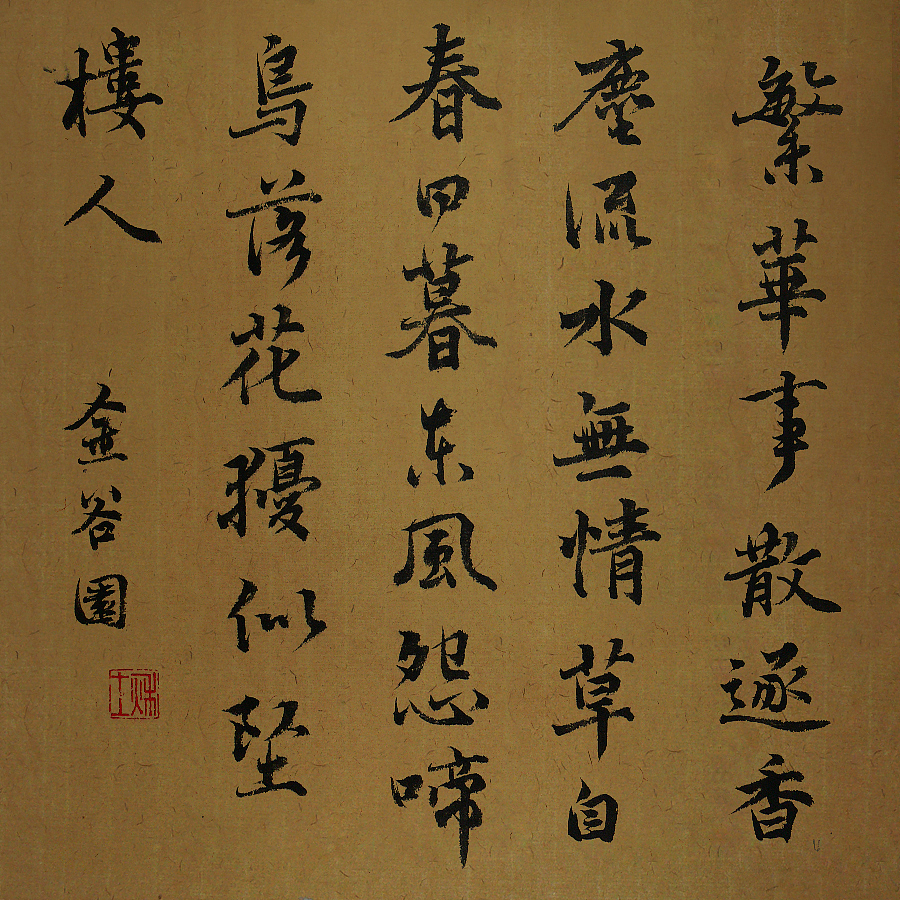 繁華事散逐香
塵流水無情草自
春日暮東風怨啼
鳥落花擾似墜
樓人
金谷園